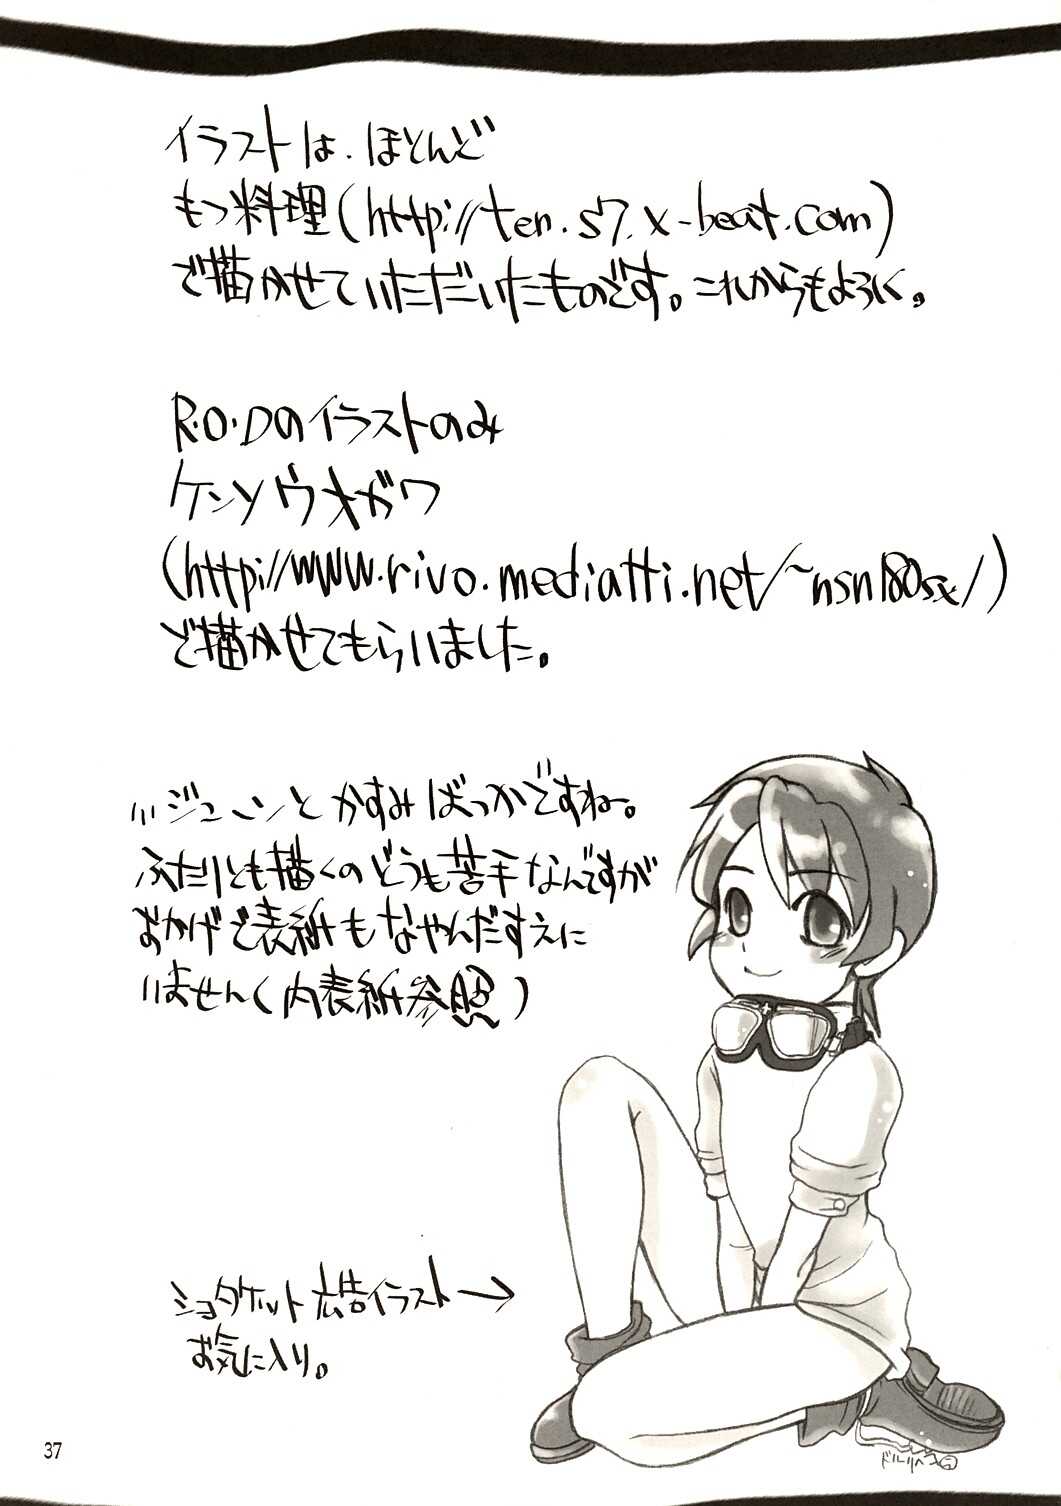 イラストは、ほとんど
もつ料理(http://ten.s7.x-beat.com)
で描かせていただいたものです。これからもよろしく。
R・O・Dのイラストのみ
ケンソウオガワ
(http://www.rivo.mediatti.net/~nsn180sx/)
で描かせてもらいました。
ジューンとかすみばっかですね。
ふたりとも描くのどうも苦手なんですが
おかげで表紙もなやんだすえに
いません(内表紙参照)
ショタケット広告イラスト→
お気に入り。
37